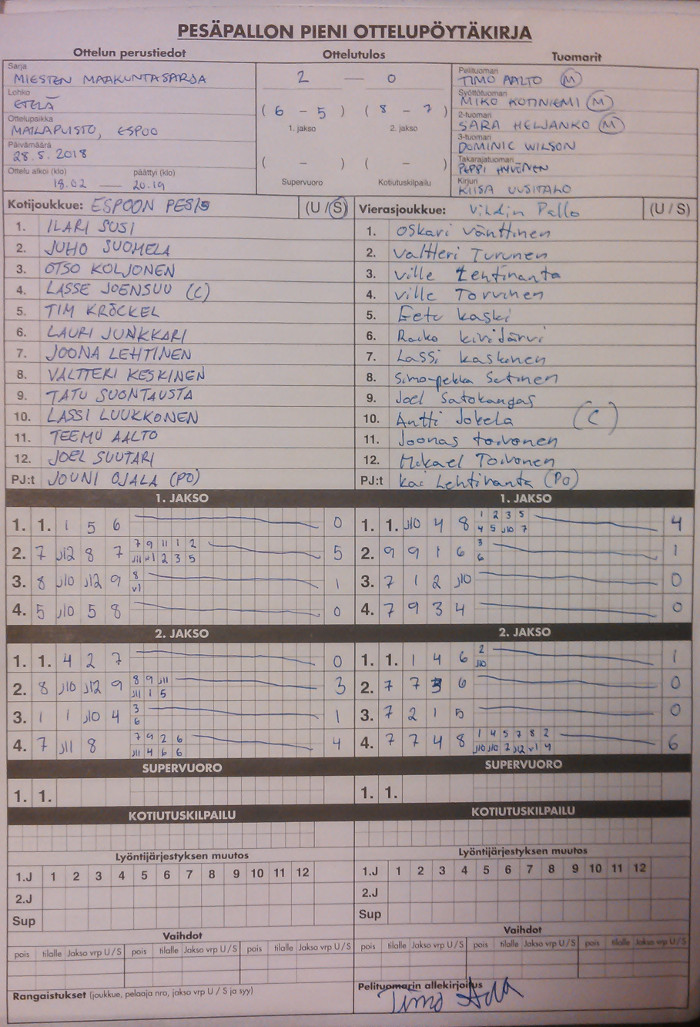 PESÄPALLON PIENI OTTELUPÖYTÄKIRJA
Ottelun perustiedot Ottelutulos Tuomarit
Sarja
MIESTEN MAAKUNTASARJA
Lohko
ETELÄ
Ottelupaikka
MAILAPUISTO, ESPOO
Päivämäärä
28.5.2018
Ottelu alkoi (klo) päättyi (klo)
18.02 — 20.19
2 — 0
( 6 - 5 ) ( 8 - 7 )
1. jakso 2. jakso
( - ) ( - )
Supervuoro Kotiutuskilpailu
Pelituomari
TIMO AALTO (M)
Syöttötuomari
MIKO KOTINIEMI (M)
2-tuomari
SARA HELJANKO (M)
3-tuomari
DOMINIC WILSON
Takarajatuomari
PEPPI HYVÖNEN
Kirjuri
KIISA UUSITALO
Kotijoukkue: ESPOON PESIS (U / S)
1. ILARI SUSI
2. JUHO SUOMELA
3. OTSO KOLJONEN
4. LASSE JOENSUU (C)
5. TIM KRÖCKEL
6. LAURI JUNKKARI
7. JOONA LEHTINEN
8. VALTTERI KESKINEN
9. TATU SUONTAUSTA
10. LASSI LUUKKONEN
11. TEEMU AALTO
12. JOEL SUUTARI
PJ:t JOUNI OJALA (PO)
Vierasjoukkue: Vihdin Pallo (U / S)
1. Oskari Vänttinen
2. Valtteri Turunen
3. Ville Lehtiranta
4. Ville Torvinen
5. Eetu Kaski
6. Raiko Kivijärvi
7. Lassi Kaskinen
8. Simo-Pekka Setinen
9. Joel Satokangas
10. Antti Jokela (C)
11. Joonas Toivonen
12. Mikael Toivonen
PJ:t Kai Lehtiranta (PO)
1. JAKSO
1. 1. 1 5 6 0
2. 7 J12 8 7 7 9 11 1 2 5
J11 v1 2 3 5
3. 8 J10 J12 9 8 1
v1
4. 5 J10 5 8 0
1. JAKSO
1. 1. J10 4 8 1 2 3 5 4
4 5 J10 7
2. 9 9 1 6 3 1
6
3. 7 1 2 J10 0
4. 7 9 3 4 0
2. JAKSO
1. 1. 4 2 7 0
2. 8 J10 J12 9 8 9 J11 3
J11 1 5
3. 1 1 J10 4 3 1
6
4. 7 J11 8 7 9 2 6 4
J11 4 6 6
2. JAKSO
1. 1. 1 4 6 2 1
J10
2. 7 7 3 6 0
3. 7 2 1 5 0
4. 7 7 4 8 1 4 5 7 8 2 6
J10 J10 2 J12 v1 4
SUPERVUORO SUPERVUORO
1. 1. 1. 1.
KOTIUTUSKILPAILU KOTIUTUSKILPAILU
Lyöntijärjestyksen muutos Lyöntijärjestyksen muutos
1.J 1 2 3 4 5 6 7 8 9 10 11 12 1.J 1 2 3 4 5 6 7 8 9 10 11 12
2.J 2.J
Sup Sup
Vaihdot Vaihdot
pois tilalle Jakso vrp U / S pois tilalle Jakso vrp U / S pois tilalle Jakso vrp U / S pois tilalle Jakso vrp U / S pois tilalle Jakso vrp U / S pois tilalle Jakso vrp U / S
Rangaistukset (joukkue, pelaaja nro, jakso vrp U / S ja syy)
Pelituomarin allekirjoitus
Timo Aalto